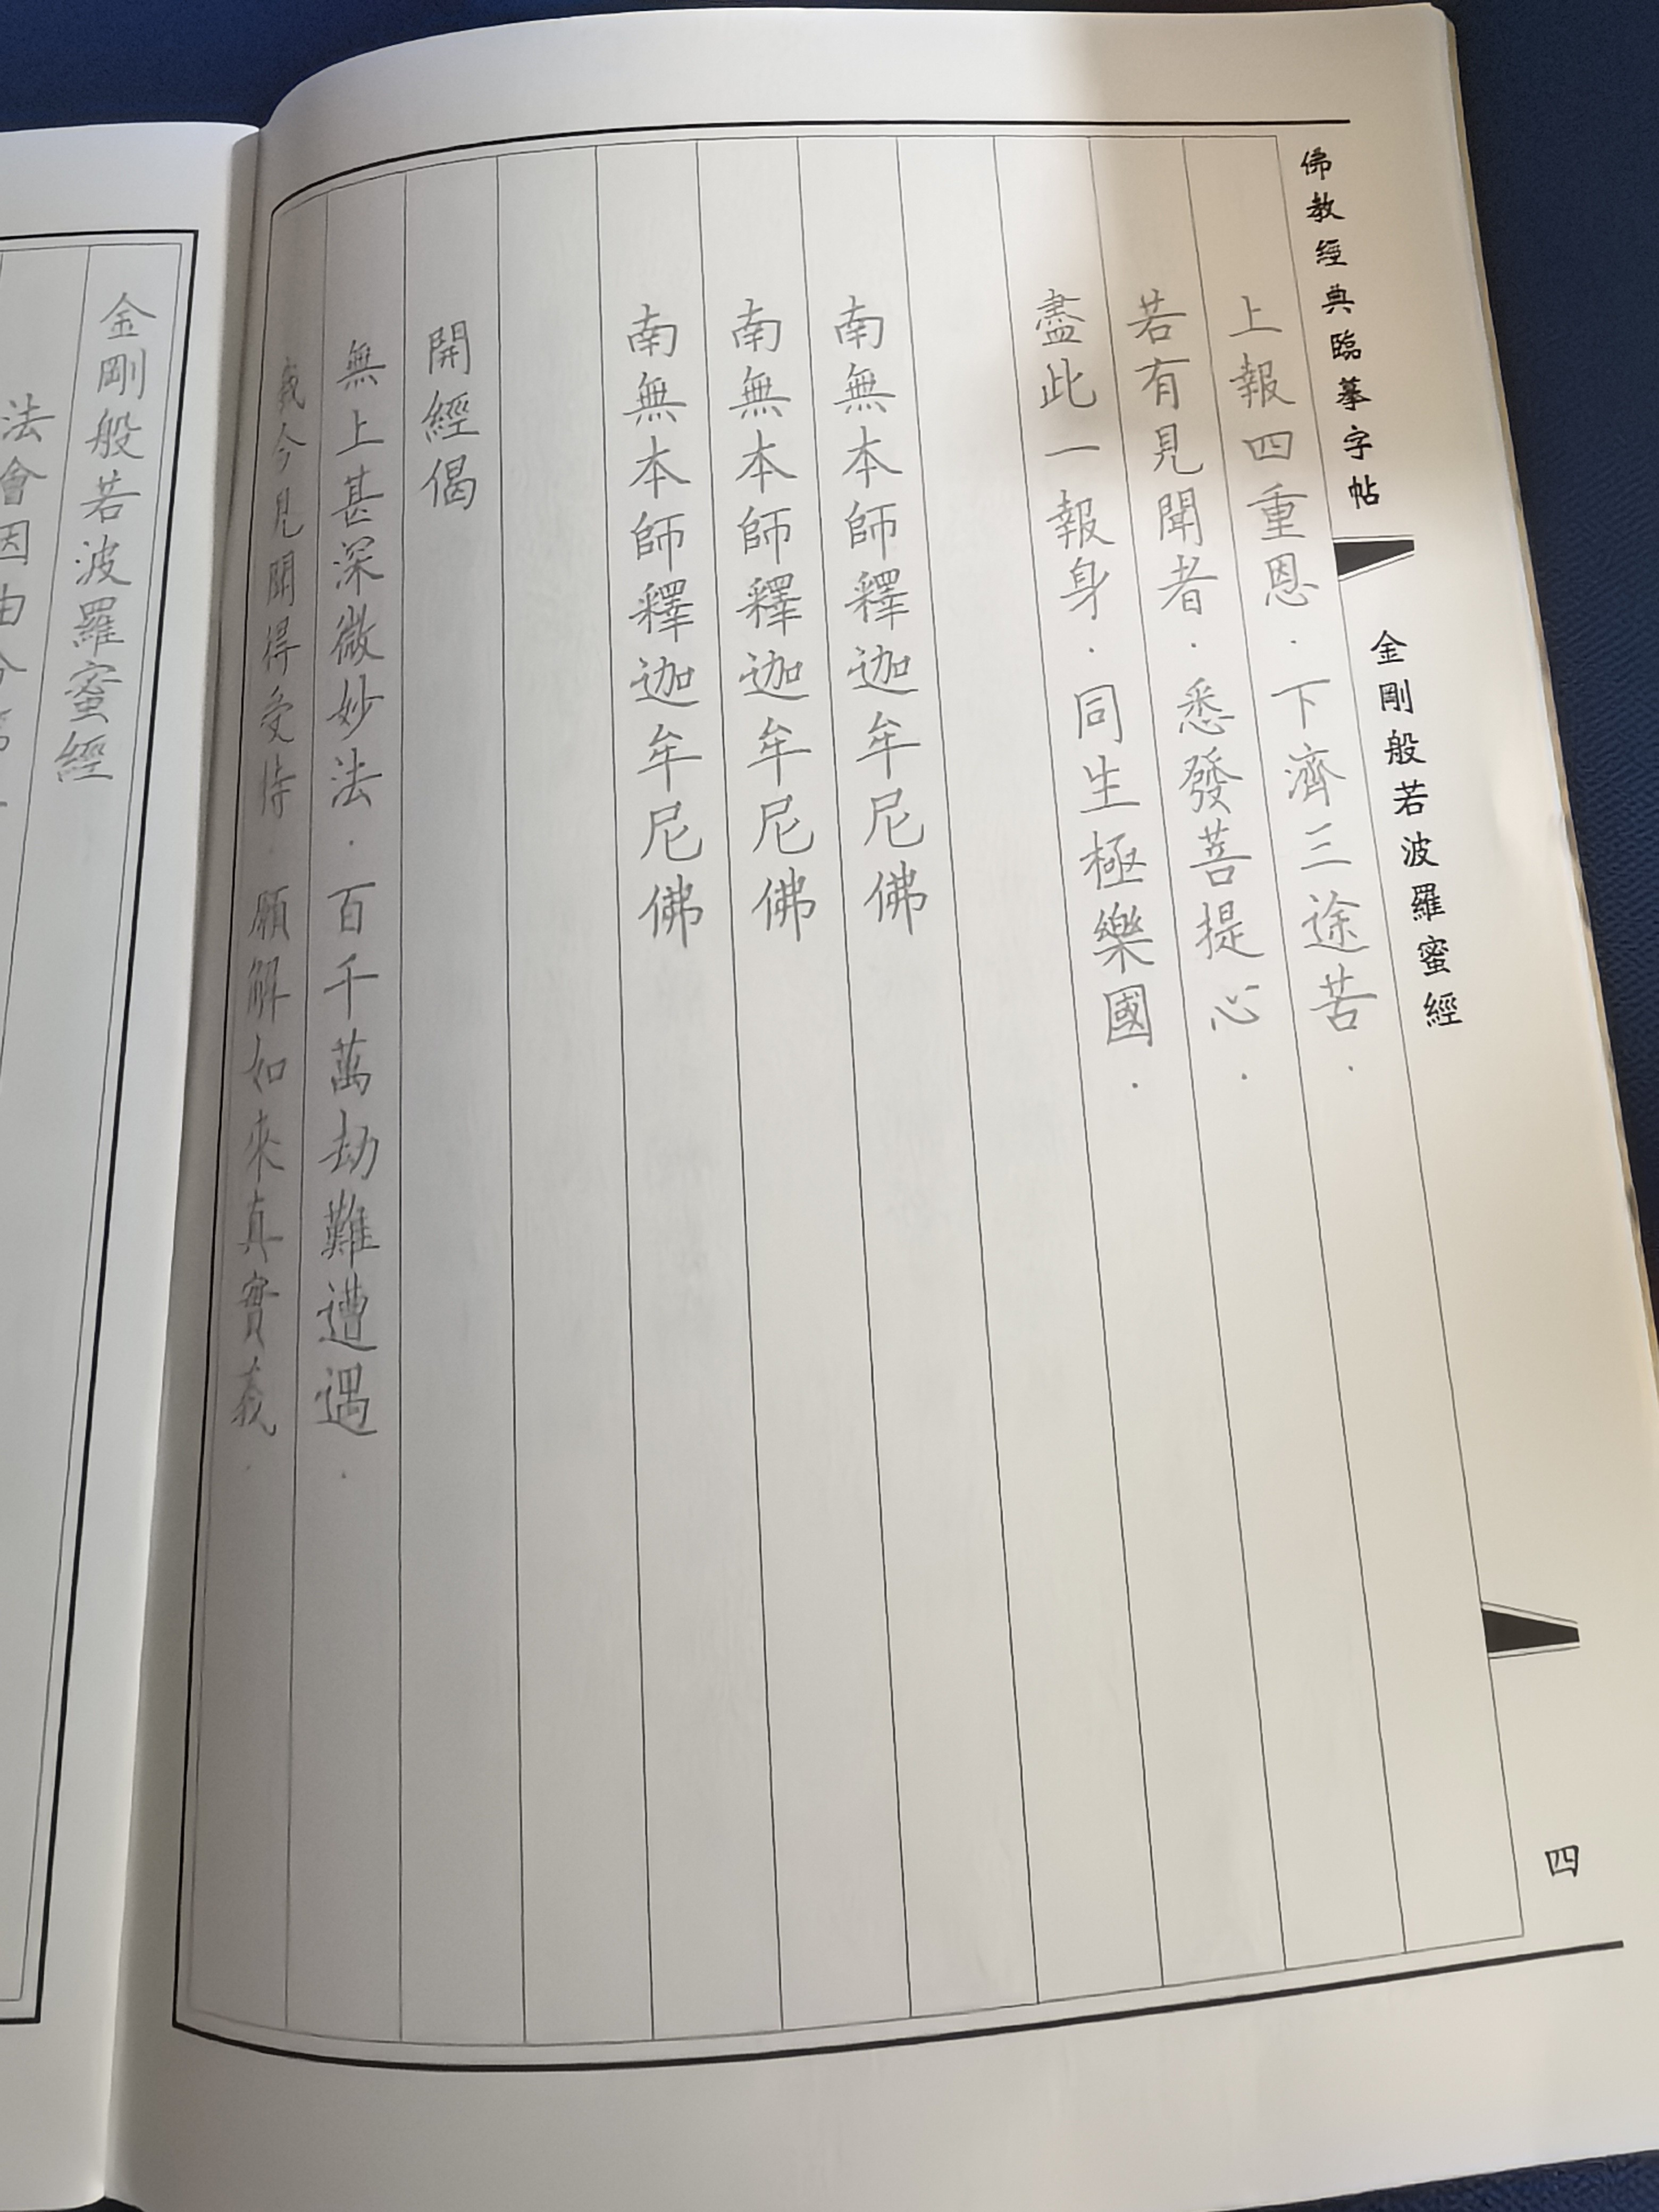 佛教經典臨摹字帖
金剛般若波羅蜜經
四
上報四重恩．下濟三途苦．
若有見聞者．悉發菩提心．
盡此一報身．同生極樂國．
南無本師釋迦牟尼佛
南無本師釋迦牟尼佛
南無本師釋迦牟尼佛
開經偈
無上甚深微妙法．百千萬劫難遭遇．
我今見聞得受持．願解如來真實義．
金剛般若波羅蜜經
法會因由分第